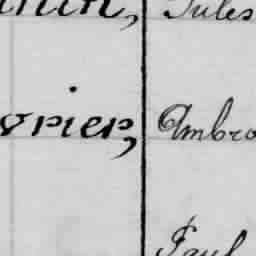 Jules
vrier, Ambro
Paul